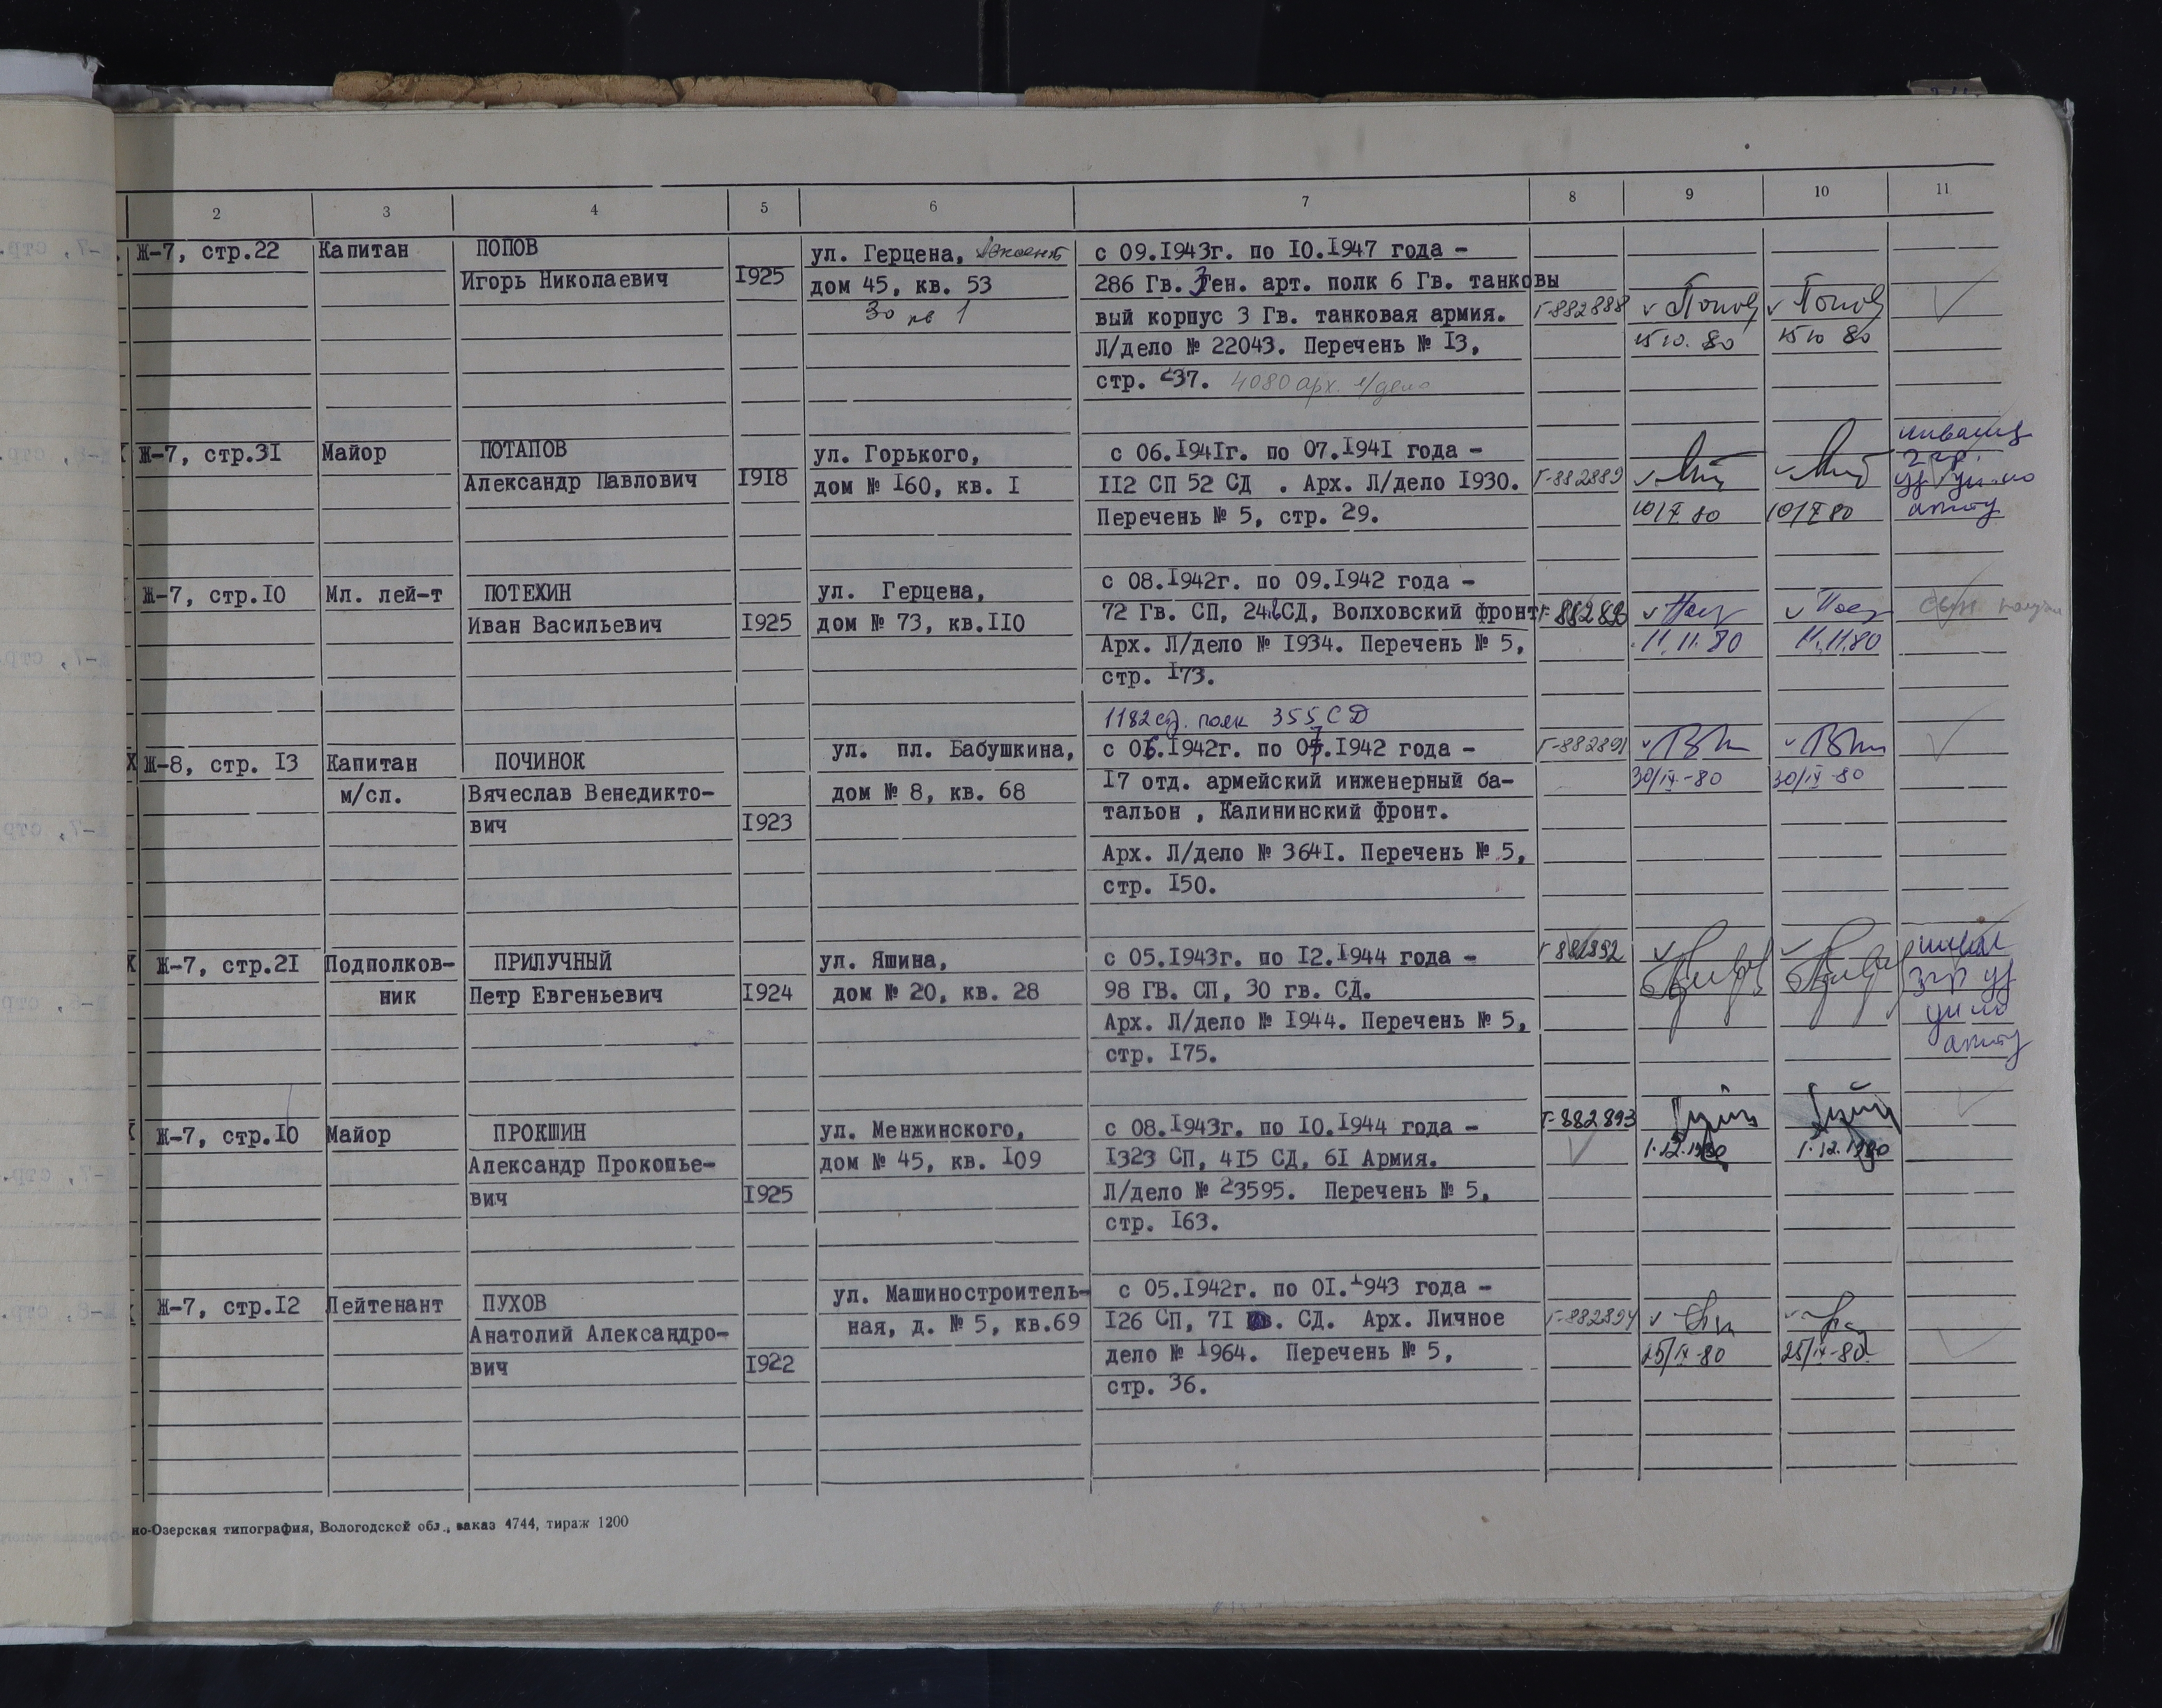 2 3 4 5 6 7 8 9 10 11
Ж-7, стр.22 Капитан ПОПОВ ул. Герцена, с 09.1943г. по 10.1947 года -
Игорь Николаевич 1925 дом 45, кв. 53 286 Гв. Ген. арт. полк 6 Гв. танковы
30 кв 1 вый корпус 3 Гв. танковая армия. Г-882888 v Попов v Попов
Л/дело № 22043. Перечень № 13, 15 10. 80 15 10 80
стр. 237. 4080 арх. л/дело
Ж-7, стр.31 Майор ПОТАПОВ ул. Горького, с 06.1941г. по 07.1941 года - инвалид
Александр Павлович 1918 дом № 160, кв. 1 112 СП 52 СД . Арх. Л/дело 1930. Г-882889 2 гр.
Перечень № 5, стр. 29. 10/X 80 10/X 80
Ж-7, стр.10 Мл. лей-т ПОТЕХИН ул. Герцена, с 08.1942г. по 09.1942 года -
Иван Васильевич 1925 дом № 73, кв.110 72 Гв. СП, СД, Волховский фронт
Арх. Л/дело № 1934. Перечень № 5, 11.11.80 11.11.80
стр. 173.
1182 сд. полк 355 СД
Ж-8, стр. 13 Капитан ПОЧИНОК ул. пл. Бабушкина, с 06.1942г. по 07.1942 года - Г-882891
м/сл. Вячеслав Венедикто- дом № 8, кв. 68 17 отд. армейский инженерный ба- 30/IX-80 30/IX-80
вич 1923 тальон , Калининский фронт.
Арх. Л/дело № 3641. Перечень № 5,
стр. 150.
Ж-7, стр.21 Подполков- ПРИЛУЧНЫЙ ул. Яшина, с 05.1943г. по 12.1944 года - Г-882892
ник Петр Евгеньевич 1924 дом № 20, кв. 28 98 ГВ. СП, 30 гв. СД. 3 гр уд
Арх. Л/дело № 1944. Перечень № 5,
стр. 175.
Ж-7, стр.10 Майор ПРОКШИН ул. Менжинского, с 08.1943г. по 10.1944 года - Г-882893
Александр Прокопье- дом № 45, кв. 109 1323 СП, 415 СД, 61 Армия. 1.12.1980 1.12.1980
вич 1925 Л/дело № 23595. Перечень № 5,
стр. 163.
Ж-7, стр.12 Лейтенант ПУХОВ ул. Машиностроитель- с 05.1942г. по 01.1943 года -
Анатолий Александро- ная, д. № 5, кв.69 126 СП, 71 СД. Арх. Личное Г-882894
вич 1922 дело № 1964. Перечень № 5, 25/IX-80 25/IX-80
стр. 36.
но-Озерская типография, Вологодской обл., заказ 4744, тираж 1200